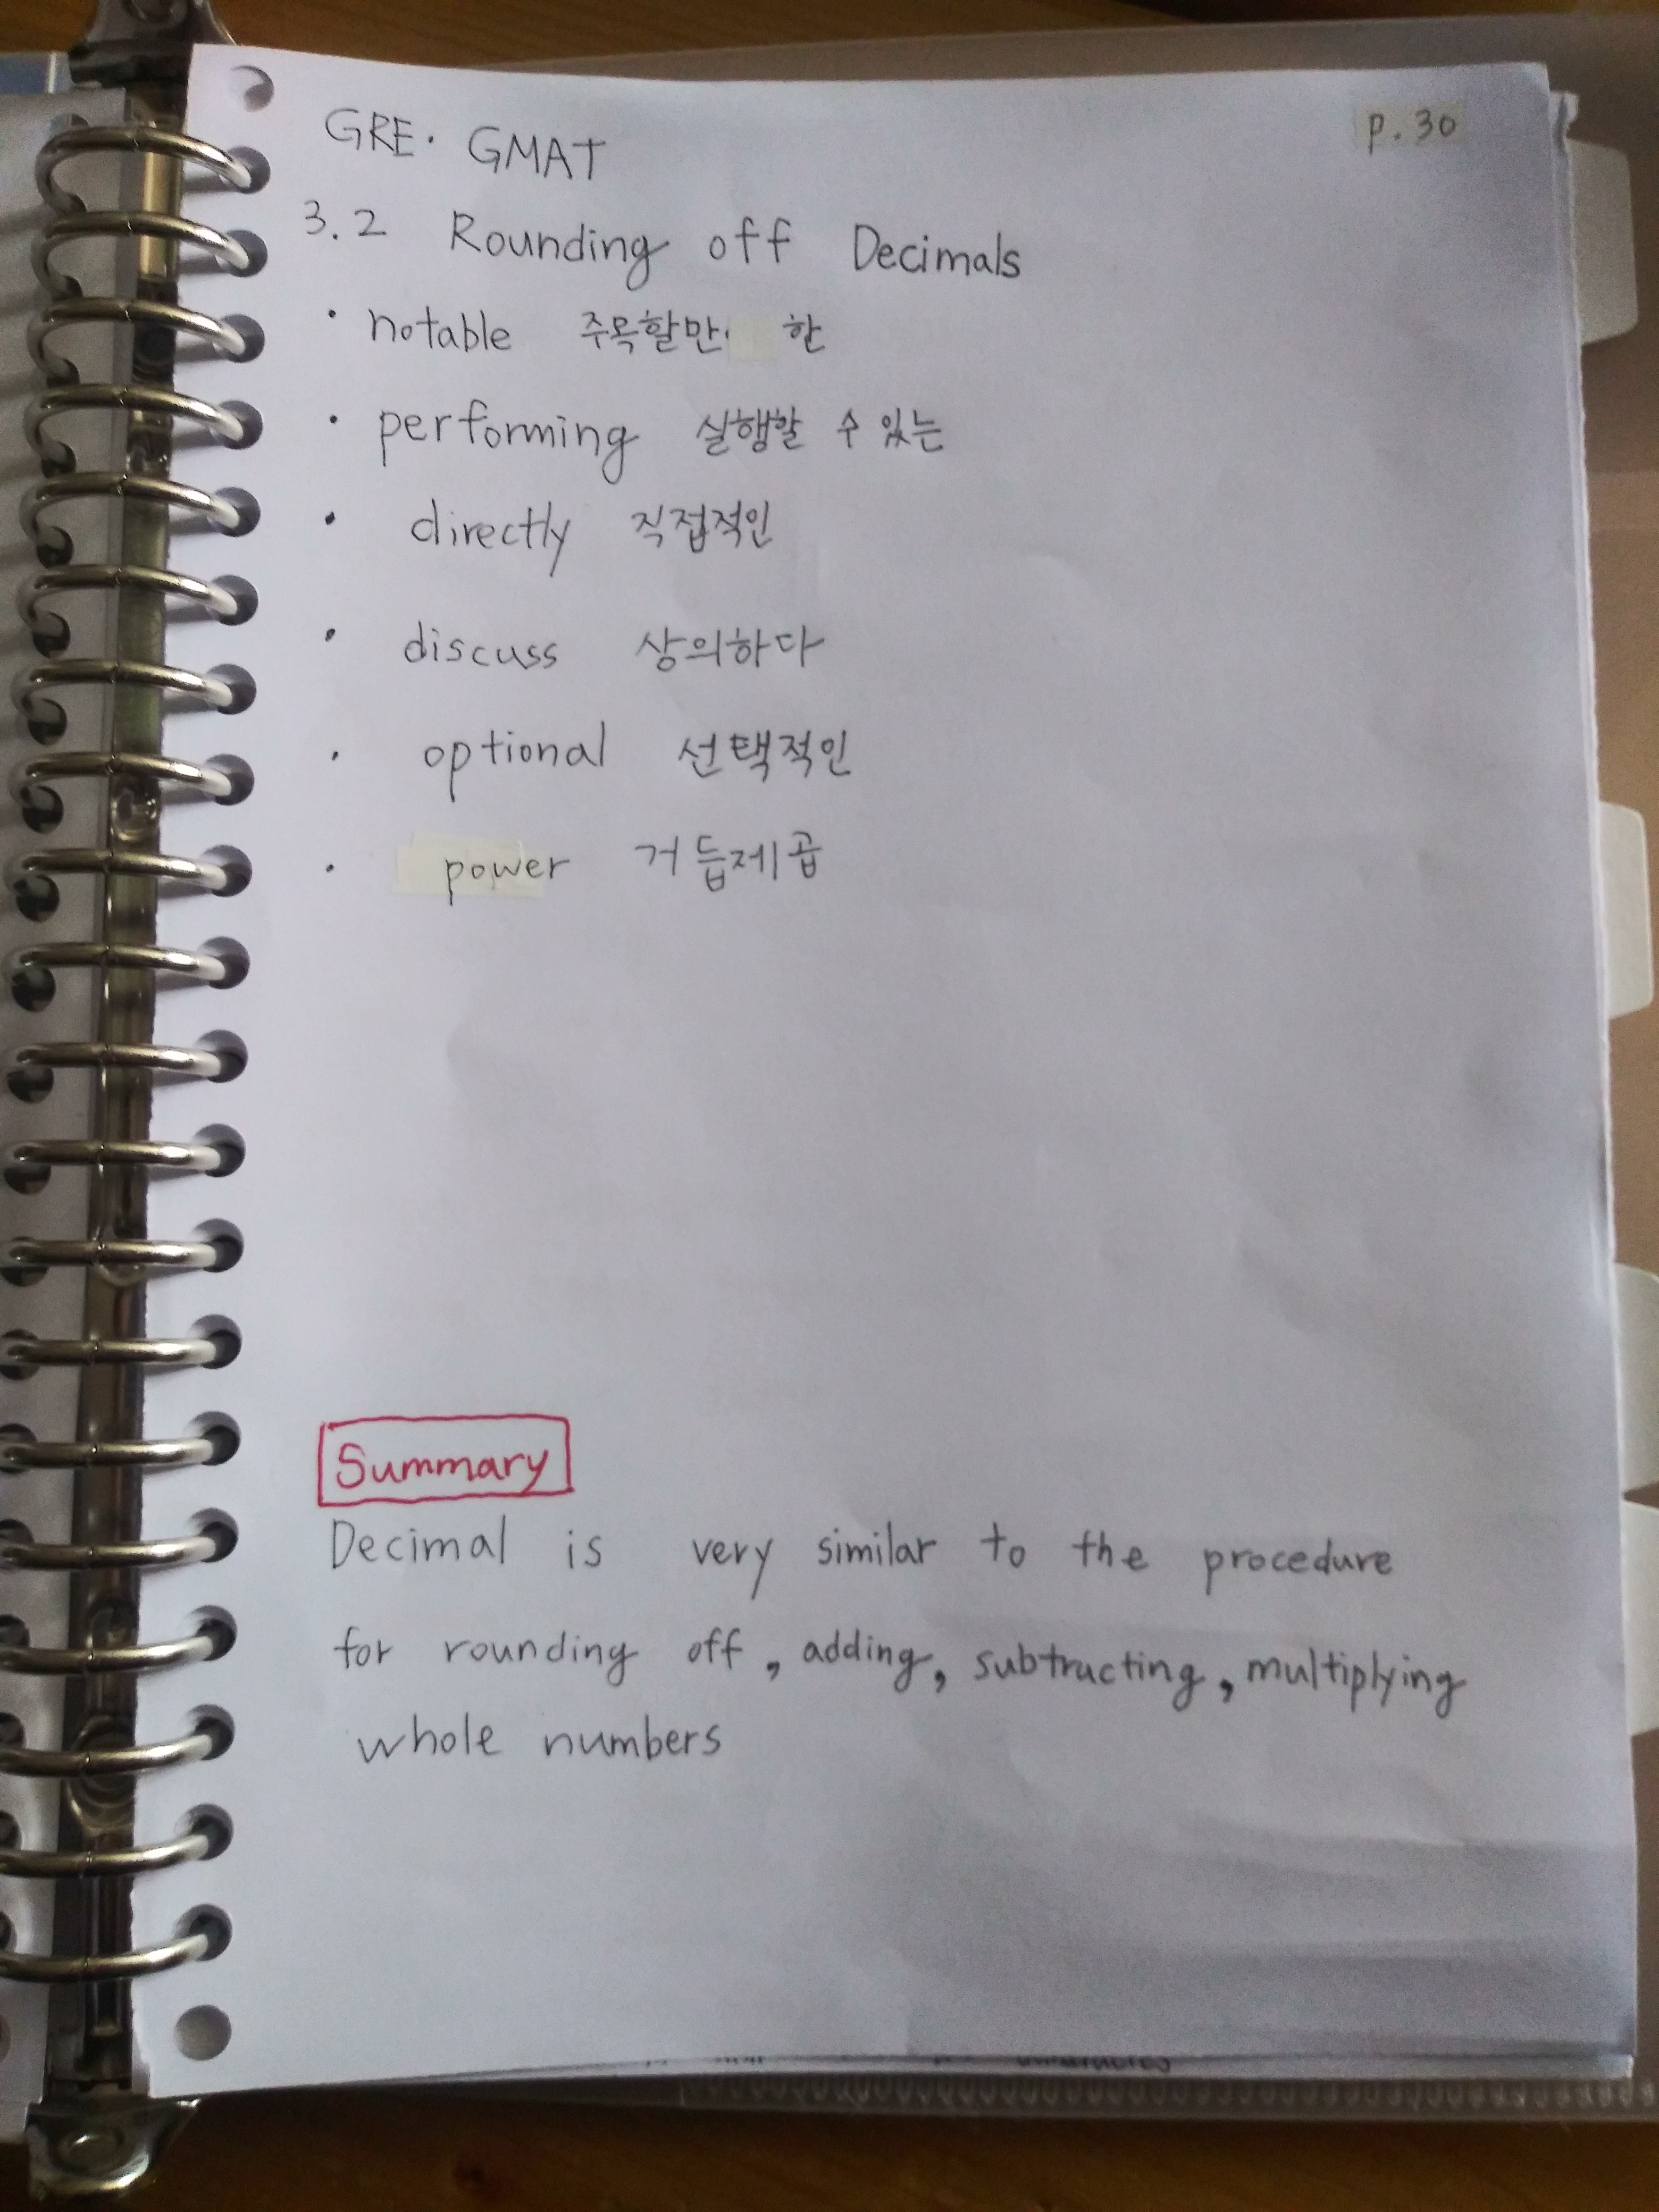 GRE. GMAT
p.30
3.2 Rounding off Decimals
· notable 주목할만 한
· performing 실행할 수 있는
· directly 직접적인
· discuss 상의하다
· optional 선택적인
· power 거듭제곱
Summary
Decimal is very similar to the procedure
for rounding off, adding, subtructing, multiplying
whole numbers